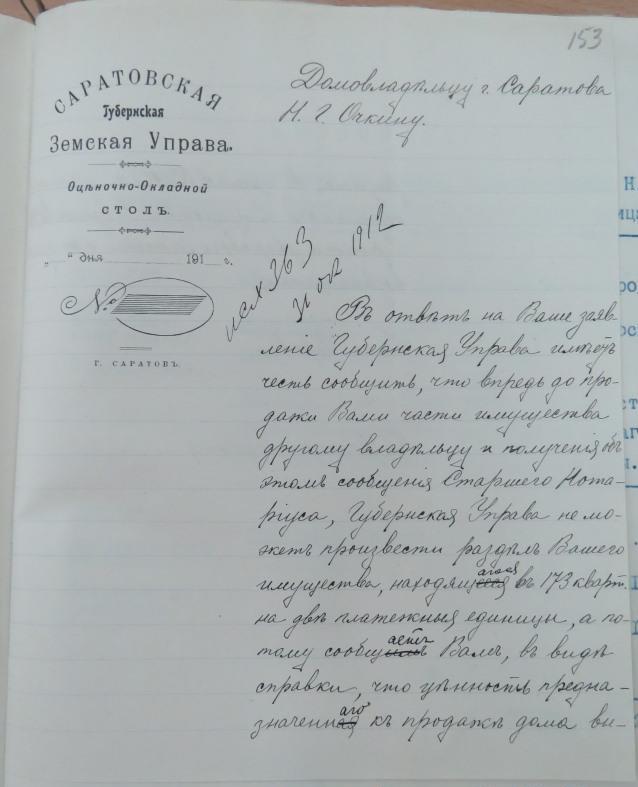 153
САРАТОВСКАЯ
Губернская
Земская Управа.
Оцѣночно-Окладной
СТОЛЪ.
„ “ дня 191 г.
№
Г. САРАТОВЪ.
Домовладѣльцу г. Саратова
Н. Г. Очкину.
исх 363
31 окт 1912
Въ отвѣтъ на Ваше заяв-
леніе Губернская Управа имѣетъ
честь сообщить, что впредь до про-
дажи Вами части имущества
другому владѣльцу и полученія объ
этомъ сообщенія Старшего Нота-
ріуса, Губернская Управа не мо-
жетъ произвести раздѣлъ Вашего
имущества, находящагося въ 173 кварт.
на двѣ платежныя единицы, а по-
тому сообщаетъ Вамъ, въ видѣ
справки, что цѣнность предна-
значеннаго къ продажѣ дома вы-